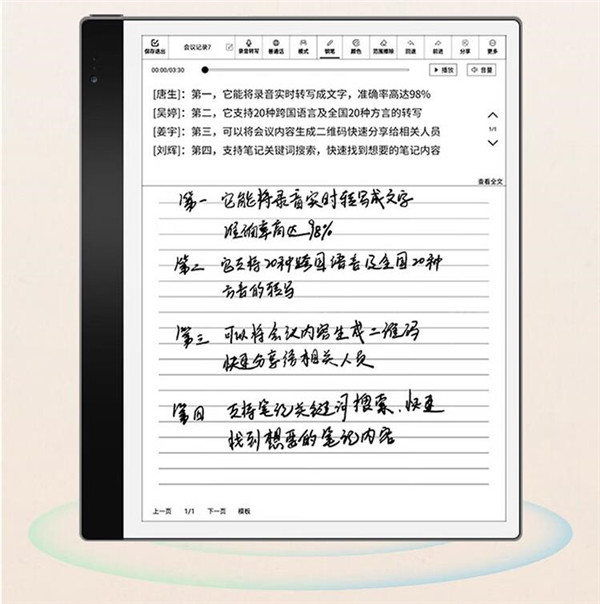 保存退出 会议记录7 录音转写 普通话 模式 钢笔 颜色 范围擦除 回退 前进 分享 更多
00:00/03:30 播放 音量
[唐生]：第一，它能将录音实时转写成文字，准确率高达98%
[吴婷]：第二，它支持20种跨国语言及全国20种方言的转写
[姜宇]：第三，可以将会议内容生成二维码快速分享给相关人员
[刘辉]：第四，支持笔记关键词搜索，快速找到想要的笔记内容
1/1
查看全文
第一 它能将录音实时转写成文字
准确率高达98%
第二 它支持20种跨国语言及全国20种
方言的转写
第三 可以将会议内容生成二维码
快速分享给相关人员
第四 支持笔记关键词搜索、快速
找到想要的笔记内容
上一页 1/1 下一页 模板